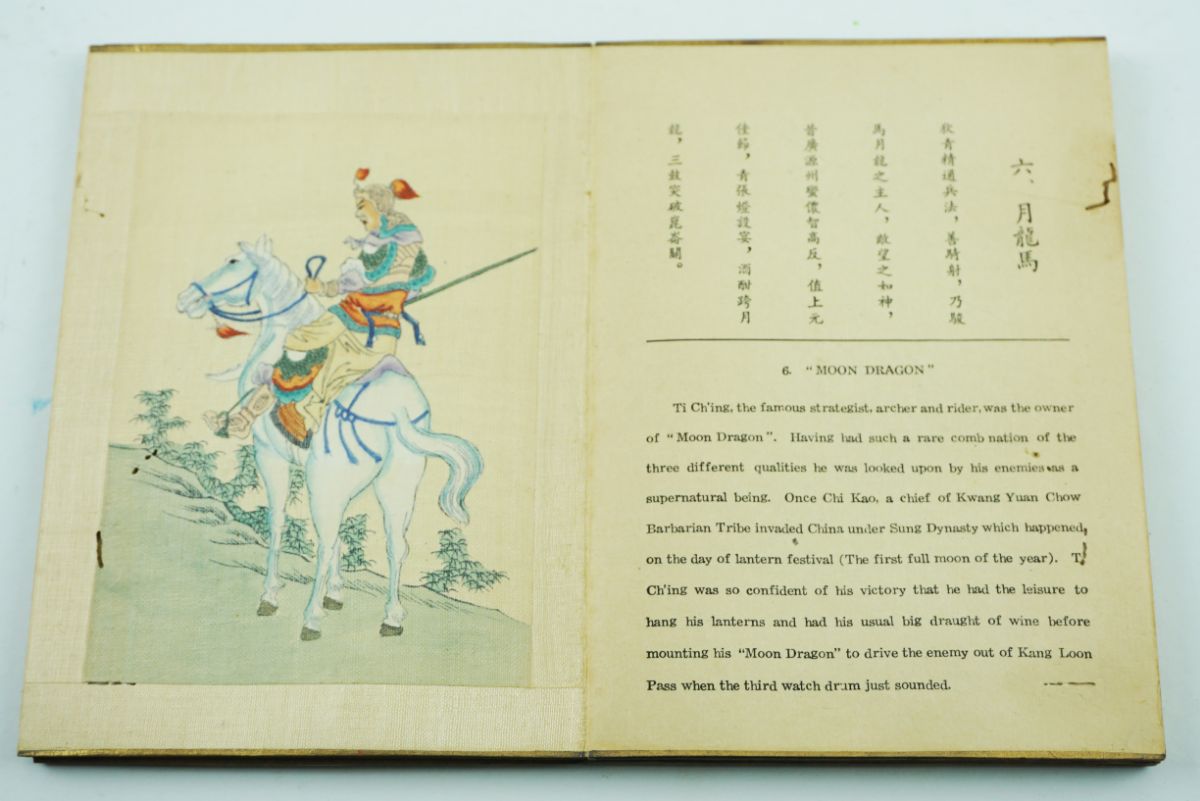 六、月龍馬
狄青精通兵法，善騎射，乃駿
馬月龍之主人，敵望之如神，
昔廣源州蠻儂智高反，值上元
佳節，青張燈設宴，酒酣跨月
龍，三鼓突破崑崙關。
6. "MOON DRAGON"
Ti Ch'ing, the famous strategist, archer and rider, was the owner
of "Moon Dragon". Having had such a rare comb nation of the
three different qualities he was looked upon by his enemies as a
supernatural being. Once Chi Kao, a chief of Kwang Yuan Chow
Barbarian Tribe invaded China under Sung Dynasty which happened,
on the day of lantern festival (The first full moon of the year). T
Ch'ing was so confident of his victory that he had the leisure to
hang his lanterns and had his usual big draught of wine before
mounting his "Moon Dragon" to drive the enemy out of Kang Loon
Pass when the third watch drum just sounded.